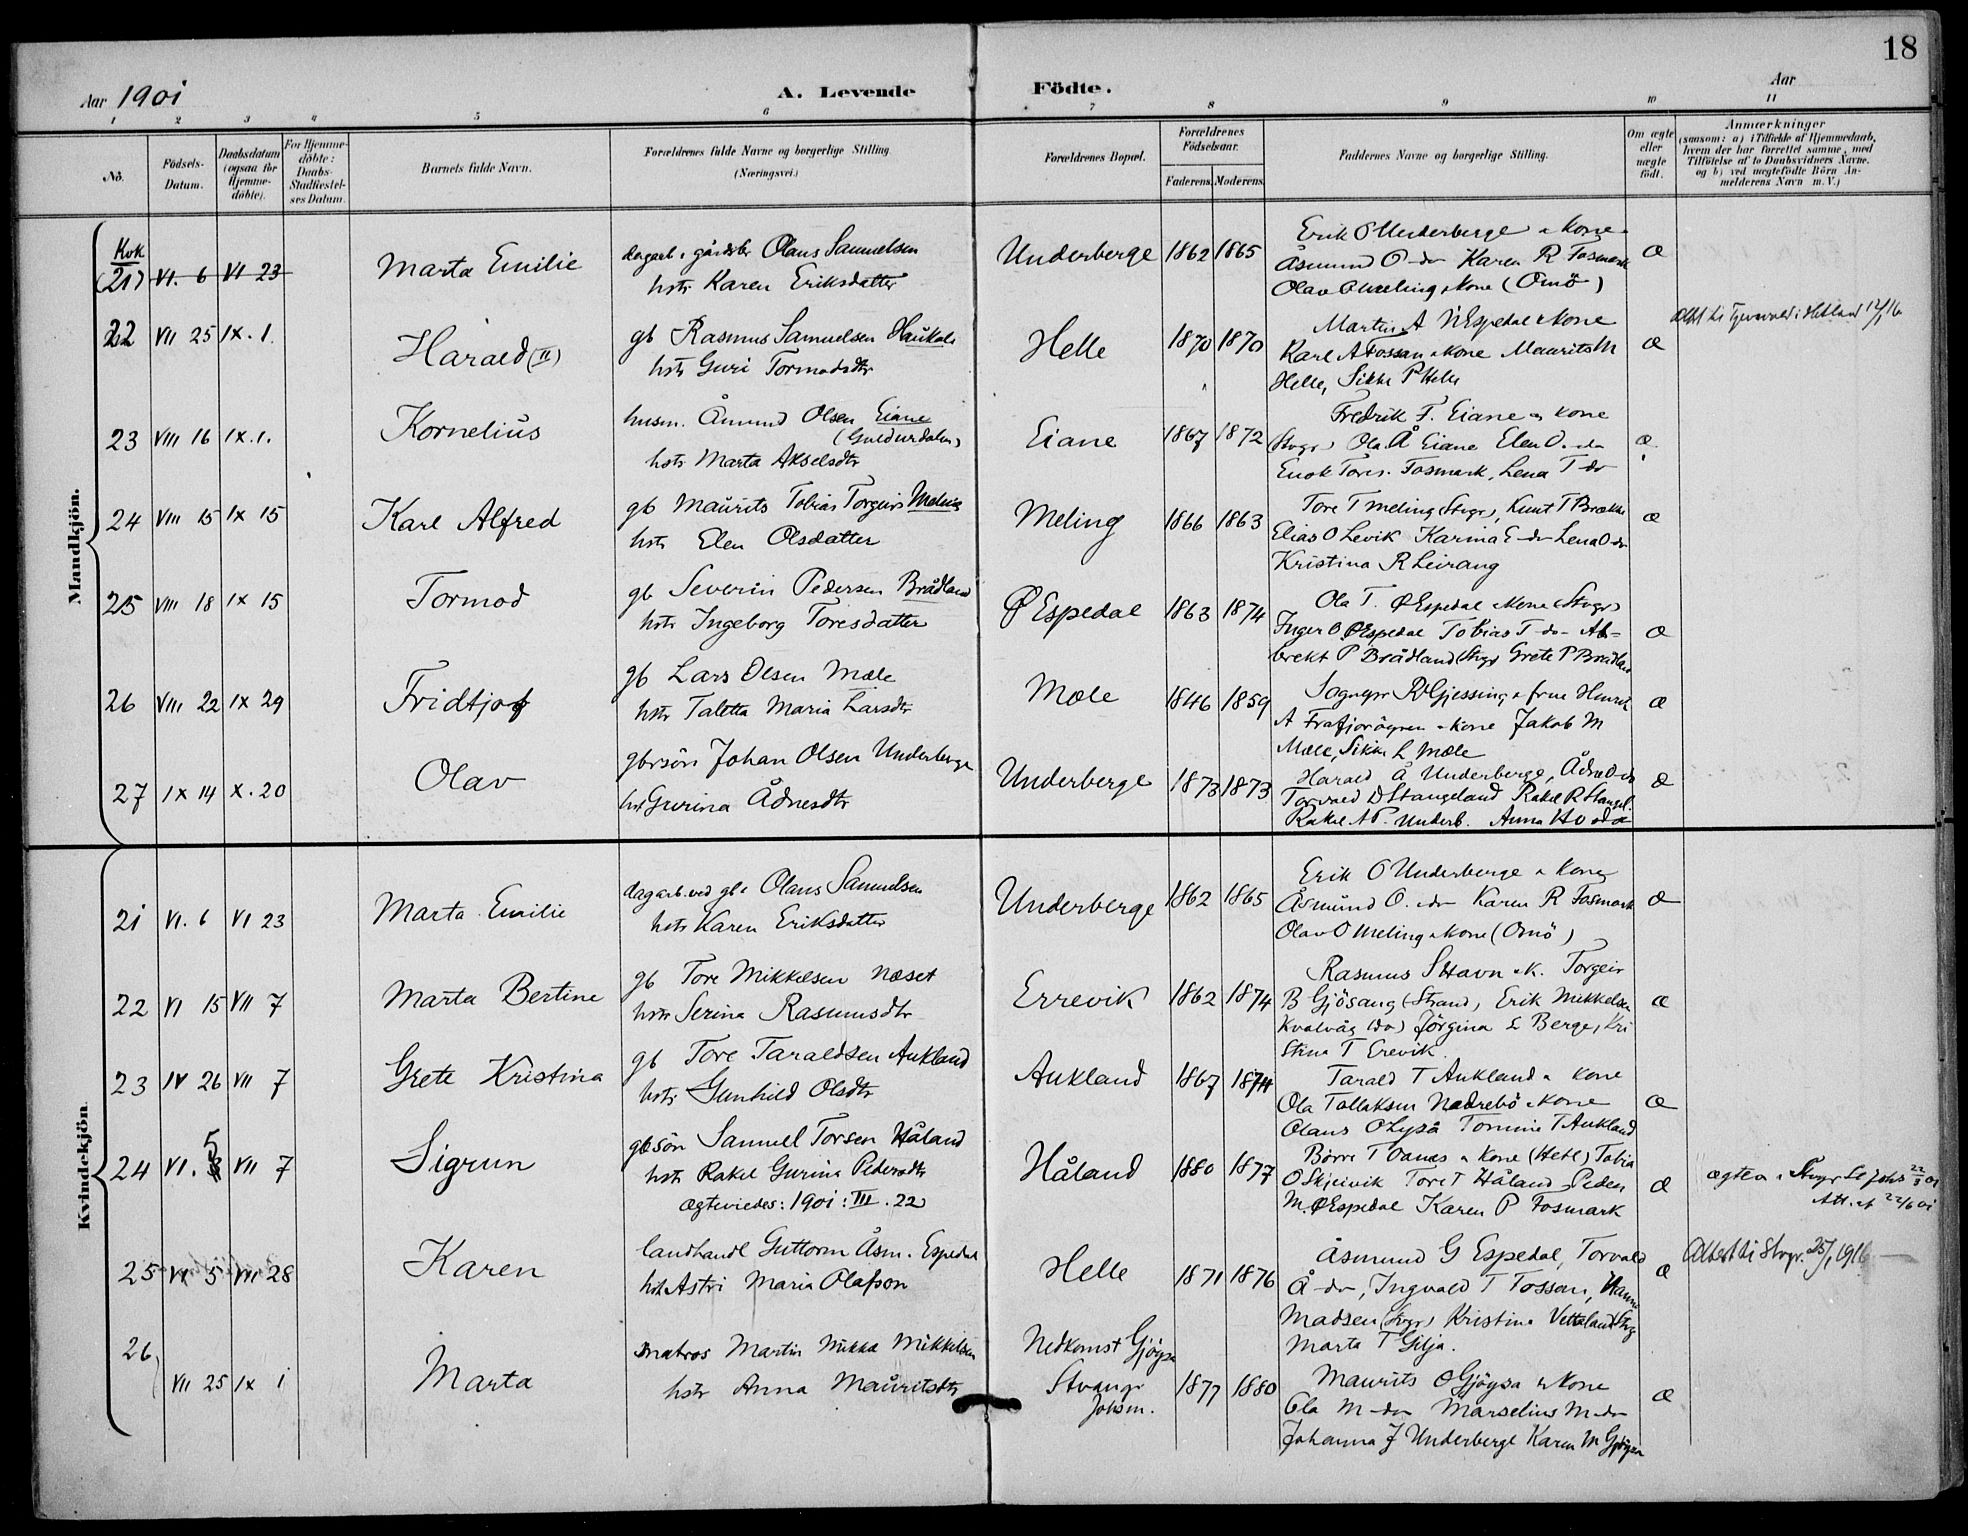 18
Aar 1901 A. Levende Födte. Aar
1 2 3 4 5 6 7 8 9 10 11
Nö.
Födsels-Datum.
Daabsdatum (ogsaa for Hjemme-döbte).
For Hjemme-döbte: Daabs-Stadfæstel-ses Datum.
Barnets fulde Navn.
Forældrenes fulde Navne og borgerlige Stilling
(Næringsvei.)
Forældrenes Bopæl.
Forældrenes Födselsaar.
Faderens. Moderens.
Faddernes Navne og borgerlige Stilling.
Om ægte eller uægte födt.
Anmærkninger
(saasom: a) i Tilfælde af Hjemmedaab,
hvem der har forrettet samme, med
Tilföielse af to Daabsvidners Navne.
og b) ved uægtefödte Börn An-
melderens Navn m. V.)
Mandkjön.
Kvk
(21) VI. 6 VI 23 Marta Emilie
Olaus Samuelsen
hstr Karen Eriksdatter
Underberge 1862 1865
Erik O Underberge & Kone
Åsmund O - do Karen R Fosmark
Olav O Meling & Kone (Omö)
Æ
22 VII 25 IX. 1. Harald (II)
gb Rasmus Samuelsen Haukali
hstr Guri Tormodsdtr
Helle 1870 1870
Martin A Espedal & Kone
Karl A Fossan & Kone Maurits M
Helle, Sikke P Helle
Æ
i Hetland 12/1 16
23 VIII 16 IX. 1. Kornelius
husm. Åmund Olsen Eiane
hstr Marta Akselsdtr
Eiane 1867 1872
Fredrik F. Eiane & Kone
(Stvgr) Ola Å Eiane Elen O. - do
Enok Tores. Fosmark, Lena T do
Æ
24 VIII 15 IX 15 Karl Alfred
gb Maurits Tobias Torgeirs Meling
hstr Elen Olsdatter
Meling 1866 1863
Tore T Meling (Stvgr), Knut T Brække
Elias O Levik Karina E - do Lena O do
Kristina R Leirang
Æ
25 VIII 18 IX 15 Tormod
gb Severin Pedersen Brådland
hstr Ingeborg Toresdatter
Ø Espedal 1863 1874
Ola T. Ø Espedal & Kone (Stvgr)
Inger O Ø Espedal Tobias T - do - Al-
brekt P Brådland (Stvgr) Grete P Brådland
Æ
26 VIII 22 IX 29 Fridtjof
gb Lars Olsen Mæle
hstr Taletta Maria Larsdtr
Mæle 1846 1859
Sognepr Gjessing & frue Henrik
A Frafjord & Kone Jakob M
Mæle, Sikke L Mæle
Æ
27 IX 14 X. 20 Olav
gbrsön Johan Olsen Underberge
hstr Gurina Ådnesdtr
Underberge 1873 1873
Harald Å Underberge, Ådne O do
Torvald D Stangeland Rakel R Stangel.
Rakel A P. Underb. Anna
Æ
Kvindekjön
21 VI. 6 VI 23 Marta Emilie
dagarb. ved gb. Olaus Samuelsen
hstr Karen Eriksdatter
Underberge 1862 1865
Erik O Underberge & Kone
Åsmund O. do Karen R Fosmark
Olav O Meling & Kone (Omö)
Æ
22 VI 15 VII 7 Marta Bertine
gb Tore Mikkelsen Næset
hstr Serina Rasmusdtr
Errevik 1862 1874
Rasmus S Havn & K. Torgeir
B Gjösang (Strand), Erik Mikkelsen
Kvalvåg (do) Jörgina E Berge, Kri
stina T Erevik.
Æ
23 IV 26 VII 7 Grete Kristina
gb Tore Taraldsen Aukland
hstr Gunhild Olsdtr
Aukland 1867 1874
Tarald T Aukland & Kone
Ola Tollaksen Nedrebö & Kone
Olaus O Lyså Tomine T Aukland
Æ
24 VI. 5 VII 7 Sigrun
gbsön Samuel Torsen Håland
hstr Rakel Gurina Pedersdtr
ægteviedes: 1901: III. 22)
Håland 1880 1877
Börre T Oanes & Kone (Hetl) Tobia
O Skjeivik Tore T Håland Peder
M. Ø Espedal Karen P Fosmark
Æ
Att. af 22/6 01
25 VI 5 VII 28 Karen
landhandl Guttorm Åsm. Espedal
hstr Astri Maria Olafson
Helle 1871 1876
Åsmund G Espedal, Torvald
Å - do, Ingvald T Fossan, Hanna
Madsen (Stvgr) Kristine Stvg
Marta T Gilja.
Æ
Attest til Stvgr. 25/1 1916
26 VII 25 IX 1 Marta
matros Martin Mikkelsen
hstr Anna Mauritsdtr
Nedkomst Gjöysa
Stvangr
Johsm.
1877 1880
Maurits O Gjöysa & Kone
Ola M - do Marselius M - do
Johanna J Underberge Karen M Gjöysa
Æ